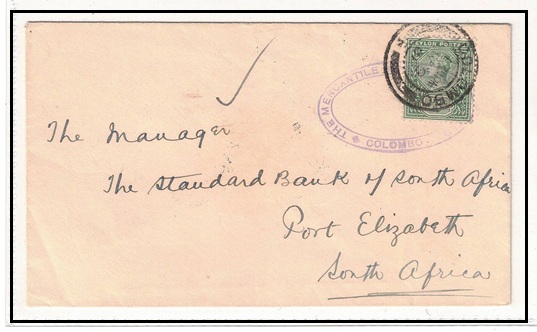 CEYLON POSTAGE
THE MERCANTILE
COLOMBO
The Manager
The Standard Bank of South Africa
Port Elizabeth
South Africa